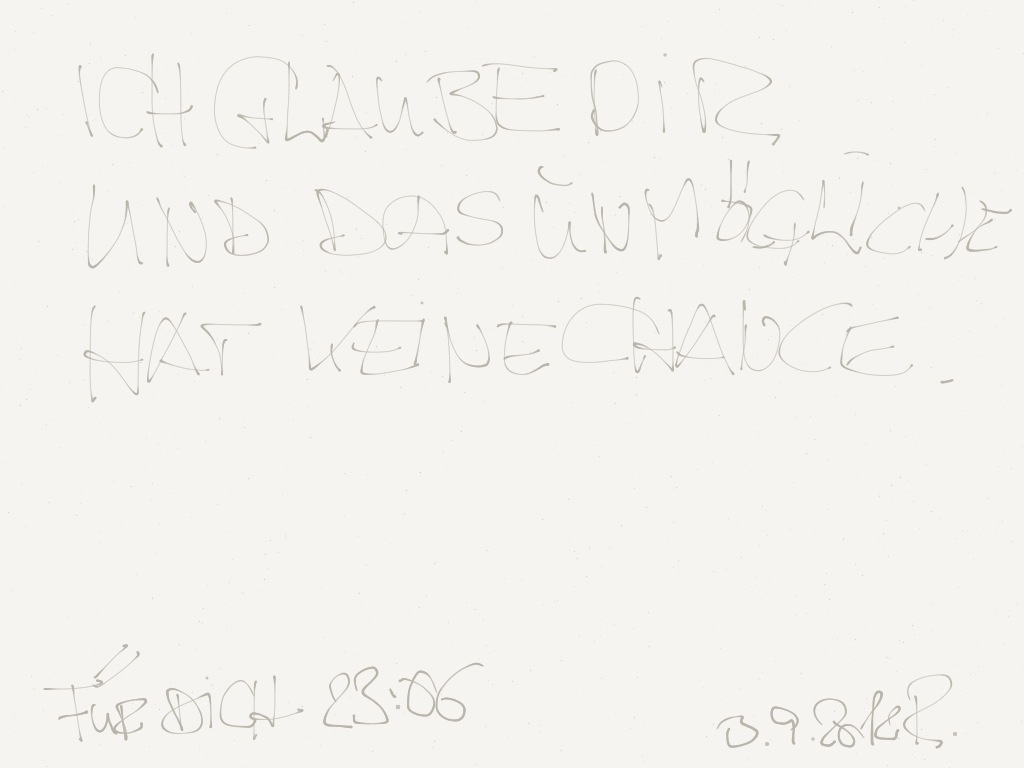 ICH GLAUBE DIR
UND DAS UNMÖGLICHE
HAT KEINE CHANCE.
FÜR DICH 23:06